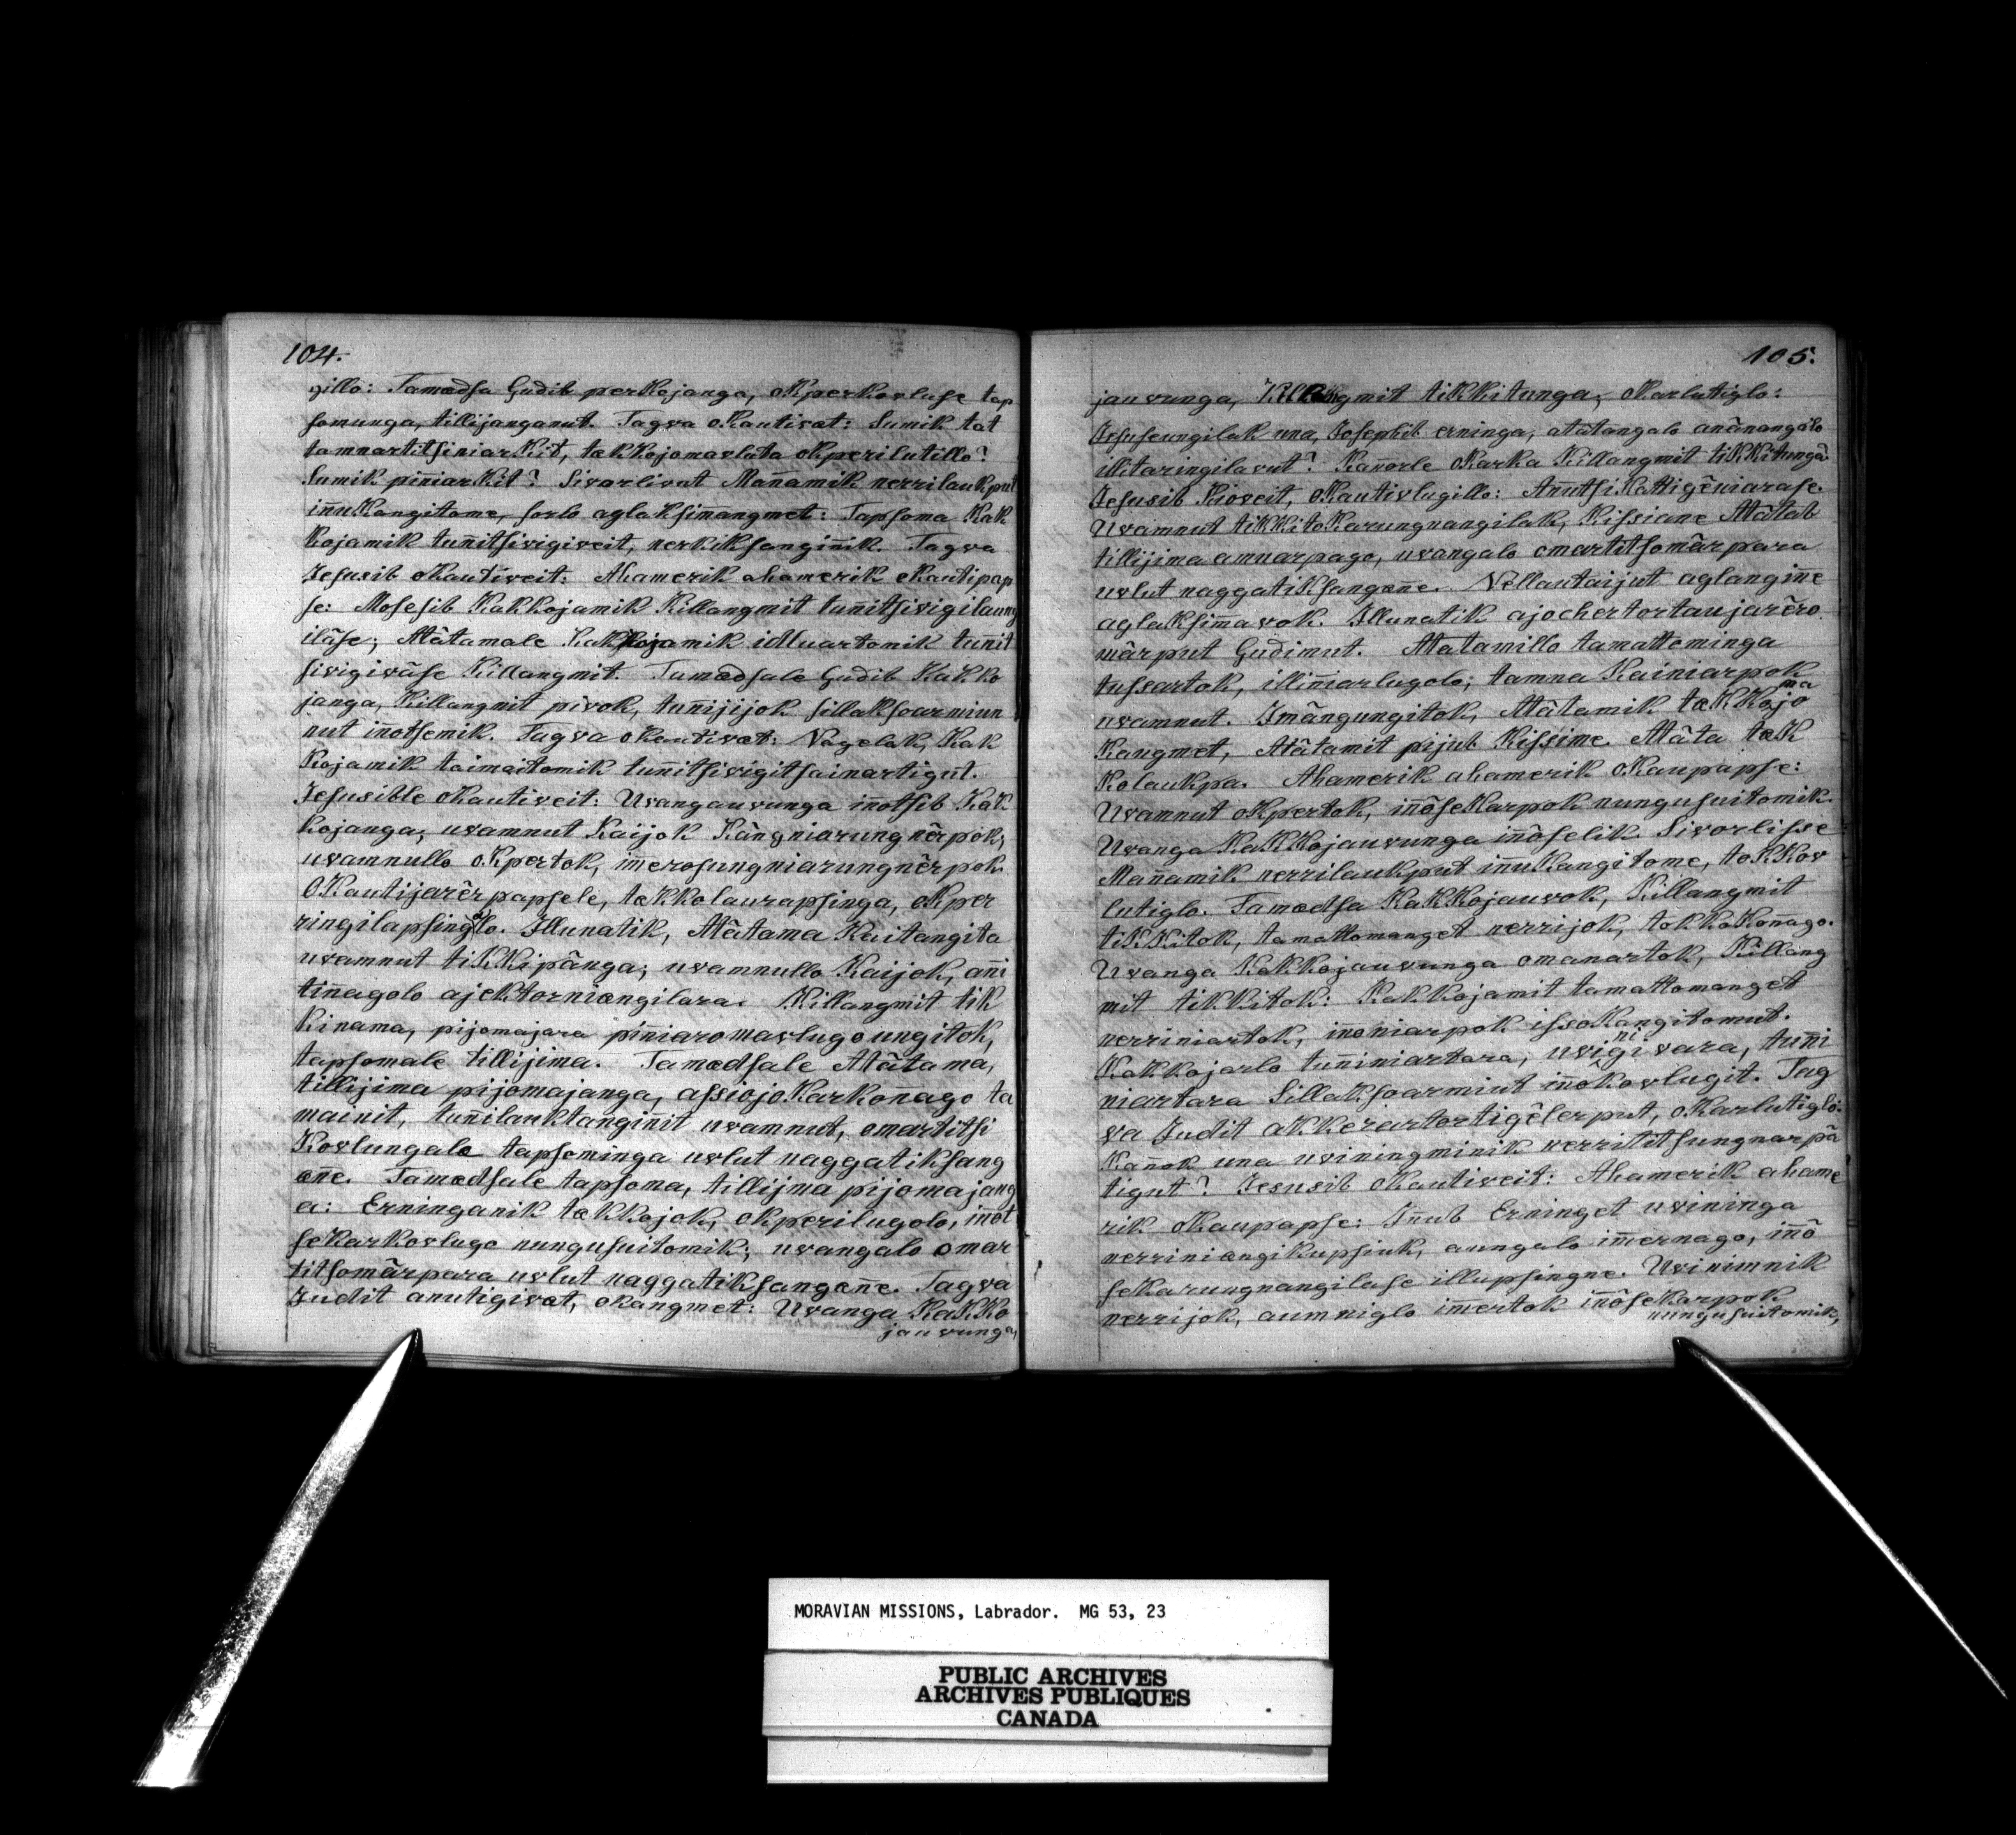 104.
gillo: Tamædsa Gudib perkojanga, oKperkovluse tap
somunga, tillijanganut. Tagva oKautivæt: Sumik tat
tamnartitsiniarKit, tækkojomavluta okperilutillo?
Sumik piniarKit? Sivorlivut Mañamik nerrilaukput
iñuKangitome, sorlo aglaksimangmet: Tapsoma Kak
kojamik tuñitsivigiveit, nerkiksanginik. Tagva
Jesusib oKautiveit: Ahamerik ahamerik oKautipap
se: Mosesib Kakkojamik Killangmit tuñitsivigilaung
iläse; Atâtamale Kakkojamik idluartomik tunit
sivigivâse Killangmit. Tamædsale Gudib KaKko
janga, Killangmit pivok, tuñijijok sillaksoarmiun
nut iñotsemik. Tagva oKautivæt: Nagelak, Kak
Kojamik taimaitomik tuñitsivigitsainartigut.
Jesusible oKautiveit: Uvangauvunga iñotsib KaK
kojanga; uvamnut Kaijok Kângniarungnêrpok,
uvamnullo oKpertok, imerosungniarungnêrpok.
OKautijarêrpapsele, tækkolaurapsinga, oKper
ringilapsingalo. Illunatik, Atâtama Kaitangita
uvamnut tiKKipânga; uvamnullo Kaijok, añi
tiñagolo ajektorniangilara. Killangmit tik
kinama, pijomajara piniaromavlugo ungitok,
tapsomale tillijima. Tamædsale Atâtama,
tillijima pijomajanga, assiojoKarkoñago ta
mainit, tuñilauktanginit uvamnut, omartitsi
Kovlungalo tapsominga uvlut naggatiksang
æñe. Tamædsale tapsoma, tillijma pijomajang
a: Erninganik tækkojok, okperilugolo, iñot
seKarkovlugo nungusuitomik; uvangalo omar
titsomârpara uvlut naggatiksangæñe. Tagva
Judit anutigivæt, oKangmet: Uvanga KaKKo
jauvunga,
105.
jauvunga, Killangmit tikkitunga; oKarlutiglo:
Jesuseungilak una, Josephib erninga, atâtangalo anânangalo
illitaringilavut? Kañorle oKarka Killangmit tiKKitunga?
Jesusib Kioveit, oKautivlugillo: AñutsiKattigêniarase.
Uvamnut tiKKitoKarungnangilak, Kissiane Atâtab
tillijima amuarpago, uvangalo omartitsomârpara
uvlut naggatiksangæñe. Nellautaijut aglangiñe
aglaksimavok. Illunatik ajochertortaujarêro
mârput Gudimut. Atatamillo tamattominga
tussartok, illiniarlugolo; tamna Kainiarpok
uvamnut. Imângungitok, Atâtamik tækkojoma
Kangmet, Atâtamit pijub Kissime. Atâta tæk
Kolaukpa. Ahamerik ahamerik oKaupapse:
Uvamnut oKpertok, iñôseKarpok nungusuitomik.
Uvanga KaKKojauvunga iñôselik. Sivorlisse
Mañamik nerrilaukput iñuKangitome, toKKov
lutiglo. Tamædsa KakKojauvok, Killangmit
tiKKitok, tamattomanget nerrijok, tokkoKonago.
Uvanga Kakkojauvunga omanartok, Killang
mit tikkitok: Kakkojamit tamattomanget
nerriniartok, inoniarpok issoKangitomut.
Kakkojarlo tuñiniartara, uviginivara, tuñi
niartara Sillaksoarmiut iñôkovlugit. Tag
va Judit akkerartortigêlerput, oKarlutiglo:
Kañok una uviningminik nerrititsungnarpa
tigut? Jesusib oKautiveit: Ahamerik ahame
rik oKaupapse: Iñub Erninget uvininga
nerriniangikupsiuk, aungalo imernago, iñô
seKarungnangilase illupsingne. Uvinimnik
nerrijok, aumniglo imertok iñôseKarpok
nungusuitomik;
MORAVIAN MISSIONS, Labrador. MG 53, 23
PUBLIC ARCHIVES
ARCHIVES PUBLIQUES
CANADA